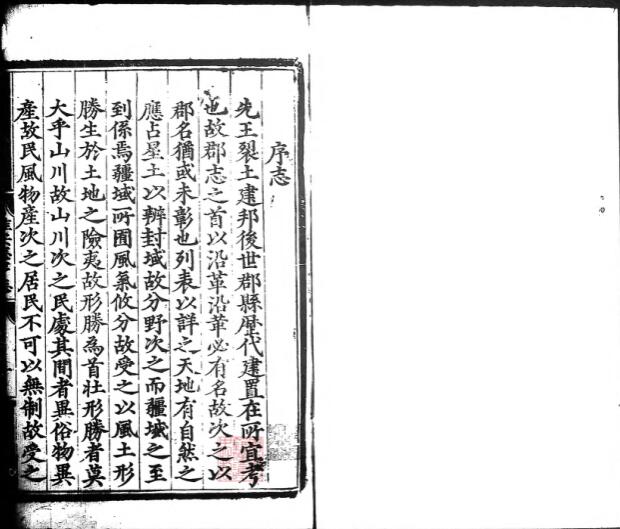 序志
先王裂土建邦後世郡縣歷代建置在所宜考
也故郡志之首以沿革沿革必有名故次之以
郡名猶或未彰也列表以詳之天地有自然之
應占星土以辨封域故分野次之而疆域之至
到係焉疆域所囿風氣攸分故受之以風土形
勝生於土地之險夷故形勝為首壯形勝者莫
大乎山川故山川次之民處其間者異俗物異
產故民風物產次之居民不可以無制故受之